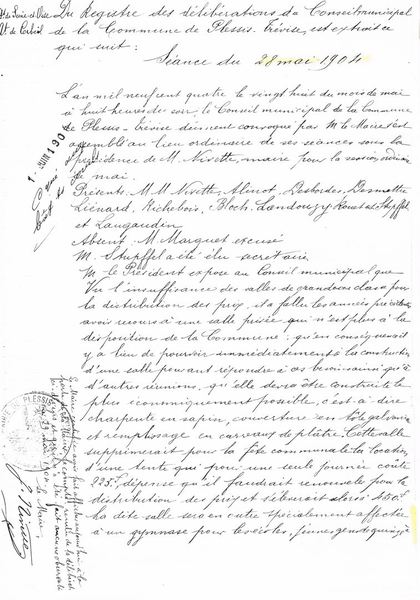 Dt de Seine-et-Oise Du Registre des délibérations du Conseil municipal
At de Corbeil de la Commune de Plessis-Trévise, est extrait ce
qui suit:
Séance du 28 mai 1904
L'an mil neuf cent quatre le vingt huit du mois de mai
à huit heures du soir, le Conseil municipal de la Commune
de Plessis-Trévise dûment convoqué par M. le Maire s'est
assemblé au lieu ordinaire de ses séances sous la
présidence de M. Nivette, maire pour la session ordinaire
de mai.
Présents. M.M. Nivette, Alinot, Desbordes, Desmette
Liénard, Richebois, Bloch, Landouzy, Stupffel
et Laugaudin
Absent. M. Marquet excusé
M. Stupffel a été élu secrétaire
M. le Président expose au Conseil municipal que
Vu l'insuffisance des salles de grandeur class pour
la distribution des prix, il a fallu les années précédentes
avoir recours à une salle privée qui n'est plus à la
disposition de la Commune; qu'en conséquence il
y a lieu de pourvoir immédiatement à la construction
d'une salle pouvant répondre à ces besoins ainsi qu'à
d'autres réunions, qu'elle devra être construite le
plus économiquement possible, c'est-à-dire
charpente en sapin, couverture en tôle galvanisée
et remplissage en carreaux de plâtre. Cette salle
supprimerait pour la fête communale la location
d'une tente qui pour une seule journée coûte
225f, dépense qu'il faudrait renouveler pour la
distribution des prix et s'élèverait alors à 450f.
La dite salle sera en outre spécialement affectée
à un gymnase pour les écoles, jeunes gens de
1 JUIN 1904
PLESSIS
Le Maire,